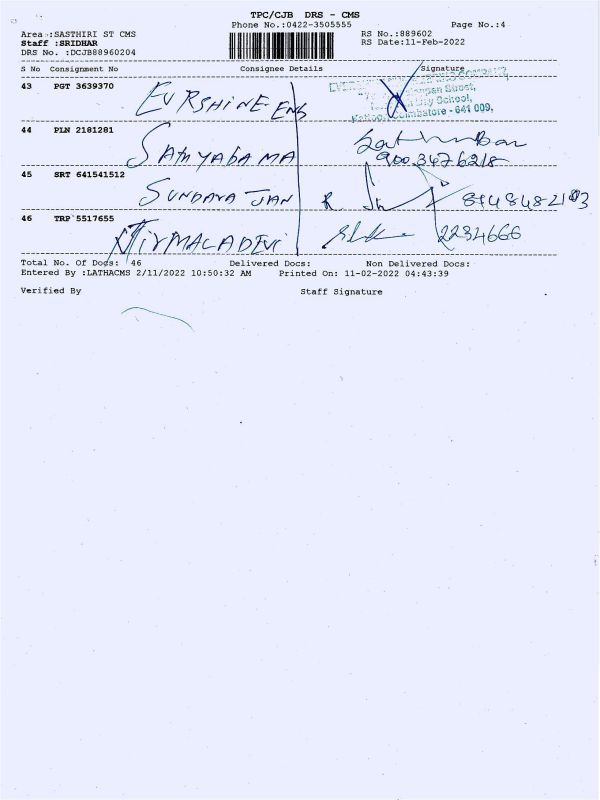 TPC/CJB DRS - CMS
Phone No.:0422-3505555 Page No.:4
Area :SASTHIRI ST CMS RS No.:889602
Staff :SRIDHAR RS Date:11-Feb-2022
DRS No. :DCJB88960204
S No Consignment No Consignee Details Signature
43 PGT 3639370 EVRSHINE ENG
Street,
School,
- 641 009.
44 PLN 2181281 SATHYABAMA
9003476218
45 SRT 641541512 SUNDARA JAN
46 TRP 5517655 NIRMALADEVI 2234666
Total No. Of Docs: 46 Delivered Docs: Non Delivered Docs:
Entered By :LATHACMS 2/11/2022 10:50:32 AM Printed On: 11-02-2022 04:43:39
Verified By Staff Signature